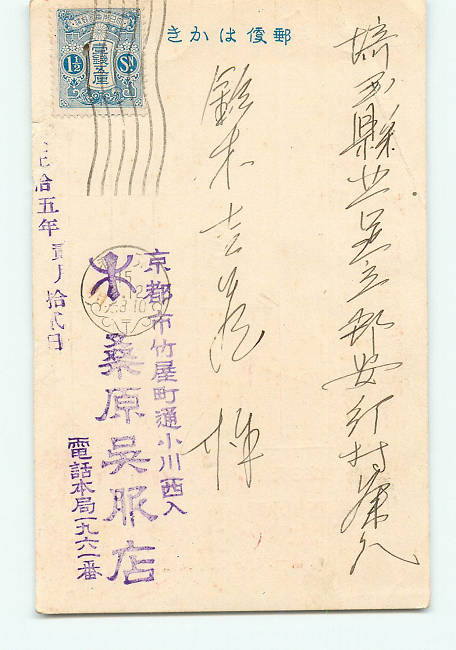 郵便はかき
1½ Sn
壹錢五厘
埼玉縣北足立郡安行村
鈴木吉 様
京都市竹屋町通小川西入
桑原呉服店
電話本局一九六一番
正拾五年貳月拾貳日